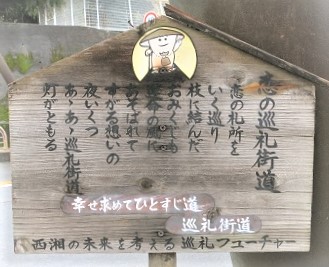 恋の巡礼街道
恋の札所を
いく巡り
枝に結んだ
おみくじも
運命の風に
あそばれて
すがる想いの
夜いくつ
あゝあゝ巡礼街道
灯がともる
幸せ求めてひとすじ道
巡礼街道
西湘の未来を考える巡礼フューチャー